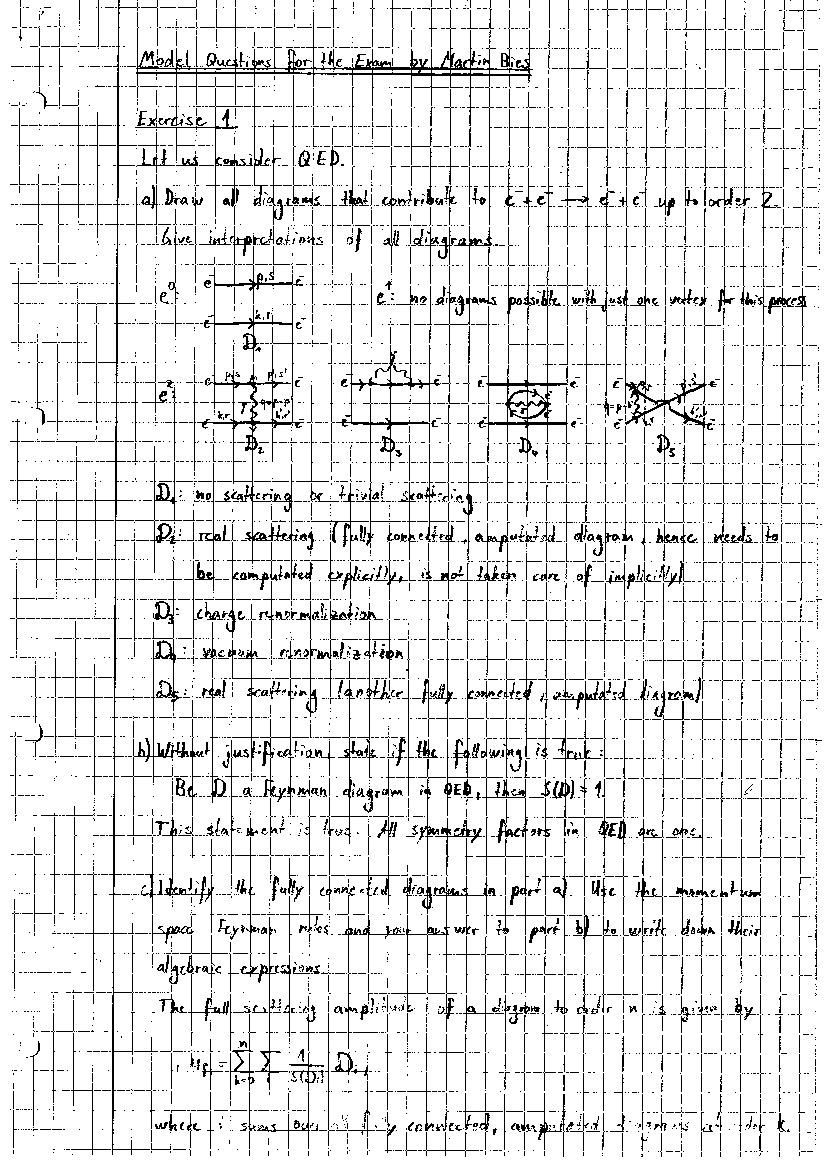 Model Questions for the Exam by Martin Bies
Exercise 1
Let us consider QED.
a) Draw all diagrams that contribute to e⁻ + e⁻ → e⁻ + e⁻ up to order 2.
Give interpretations of all diagrams.
e⁰: e⁻ p,s e⁻
e⁻ k,r e⁻
D₁
e¹: no diagrams possible with just one vertex for this process
e²: e⁻ p,s p',s' e⁻ e⁻ γ e⁻ e⁻ e⁻ e⁻ e⁻
e⁻ k,r γ e⁻ e⁻ e⁻ e⁻ e⁻ e⁻ e⁻
D₂ D₃ D₄ D₅
D₁: no scattering or trivial scattering
D₂: real scattering (fully connected, amputated diagram, hence needs to
be computated explicitly, is not taken care of implicitly)
D₃: charge renormalization
D₄: vacuum renormalization
D₅: real scattering (another fully connected, amputated diagram)
b) Without justification, state if the following is true:
Be D a Feynman diagram in QED, then S(D) = 1.
This statement is true. All symmetry factors in QED are one.
c) Identify the fully connected diagrams in part a). Use the momentum
space Feynman rules and your answer to part b) to write down their
algebraic expressions.
The full scattering amplitude of a diagram to order n is given by
= ∑ₖ₌₀ⁿ ∑ᵢ 1/S(Dᵢ) Dᵢ,
where i sums over all fully connected, amputated diagrams at order k.